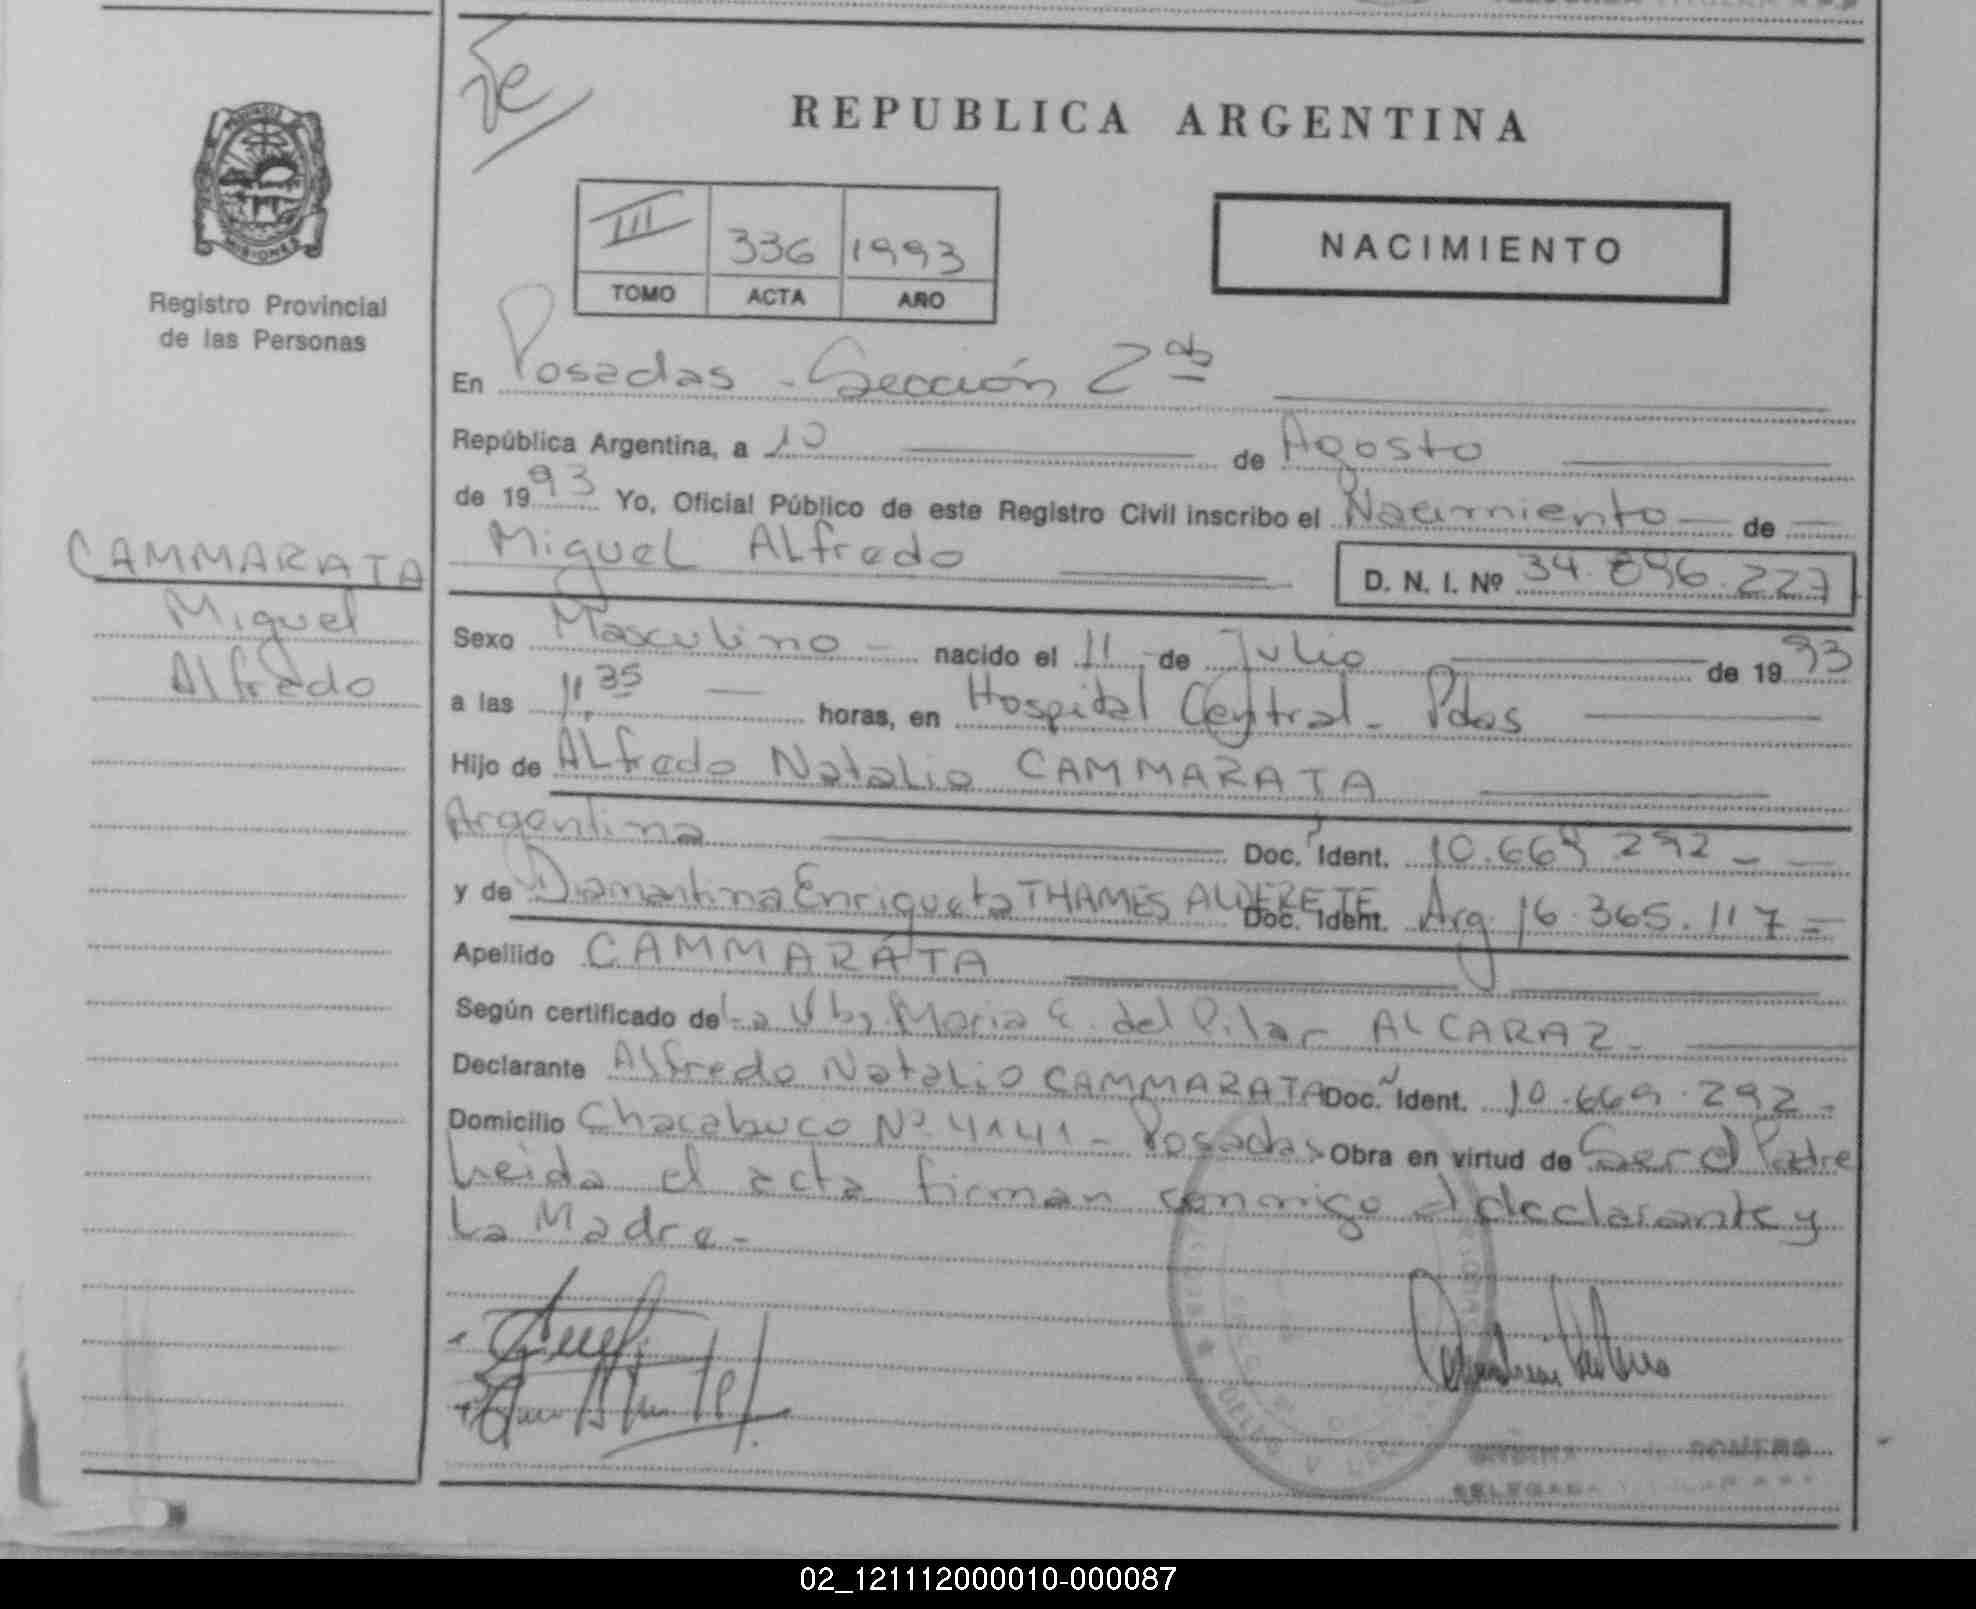 REPUBLICA ARGENTINA
MISIONES
Registro Provincial
de las Personas
III 336 1993
TOMO ACTA AÑO
NACIMIENTO
En Posadas - Sección 2ª
República Argentina, a 10 de Agosto
de 1993 Yo, Oficial Público de este Registro Civil inscribo el Nacimiento de
Miguel Alfredo D. N. I. Nº 34.896.227
CAMMARATA
Miguel
Alfredo
Sexo Masculino - nacido el 11 de Julio de 1993
a las 11,35 horas, en Hospital Central - Pdas
Hijo de Alfredo Natalio CAMMARATA
Argentina Doc. Ident. 10.669.292
y de Diamantina Enriqueta THAMES ALDERETE Doc. Ident. Arg. 16.365.117
Apellido CAMMARATA
Según certificado de La Maria E. del Pilar ALCARAZ
Declarante Alfredo Natalio CAMMARATA Doc. Ident. 10.669.292
Domicilio Chacabuco Nº 4141 - Posadas Obra en virtud de Ser el Padre
Leida el acta firman conmigo el declarante y
La Madre -
02_121112000010-000087